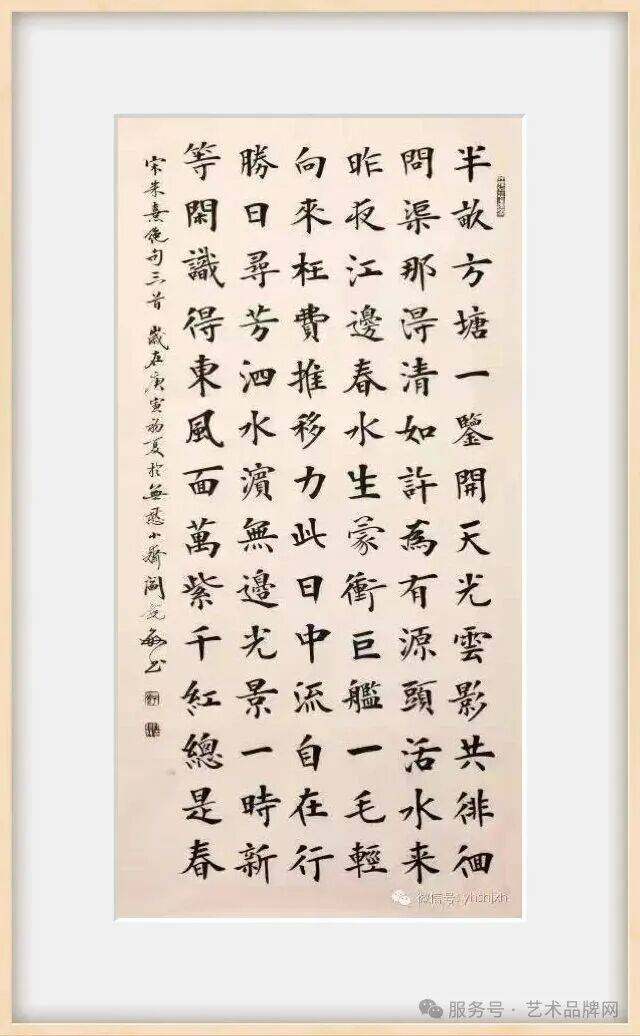 半畝方塘一鑒開天光雲影共徘徊
問渠那得清如許為有源頭活水来
昨夜江邊春水生蒙衝巨艦一毛輕
向來枉費推移力此日中流自在行
勝日尋芳泗水濱無邊光景一時新
等閑識得東風面萬紫千紅總是春
宋朱熹絕句三首 歲在庚寅初夏於無愁小齋閻敏書
微信号: yhshjxh
服务号 · 艺术品牌网